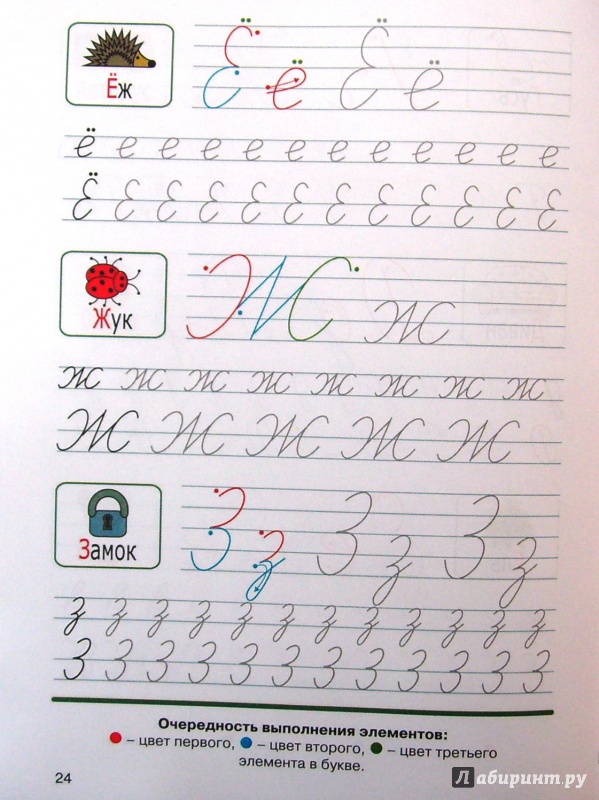 Ёж
Ё ё Ё ё
ё е е е е е е е е е е е
Ё Е Е Е Е Е Е Е Е Е Е Е
Жук
Ж ж
ж ж ж ж ж ж ж ж
Ж Ж Ж Ж Ж
Замок
З з З з З з
з з з з з з з з з з з з
З З З З З З З З З З З З
Очередность выполнения элементов:
– цвет первого, – цвет второго, – цвет третьего
элемента в букве.
24
Лабиринт.ру